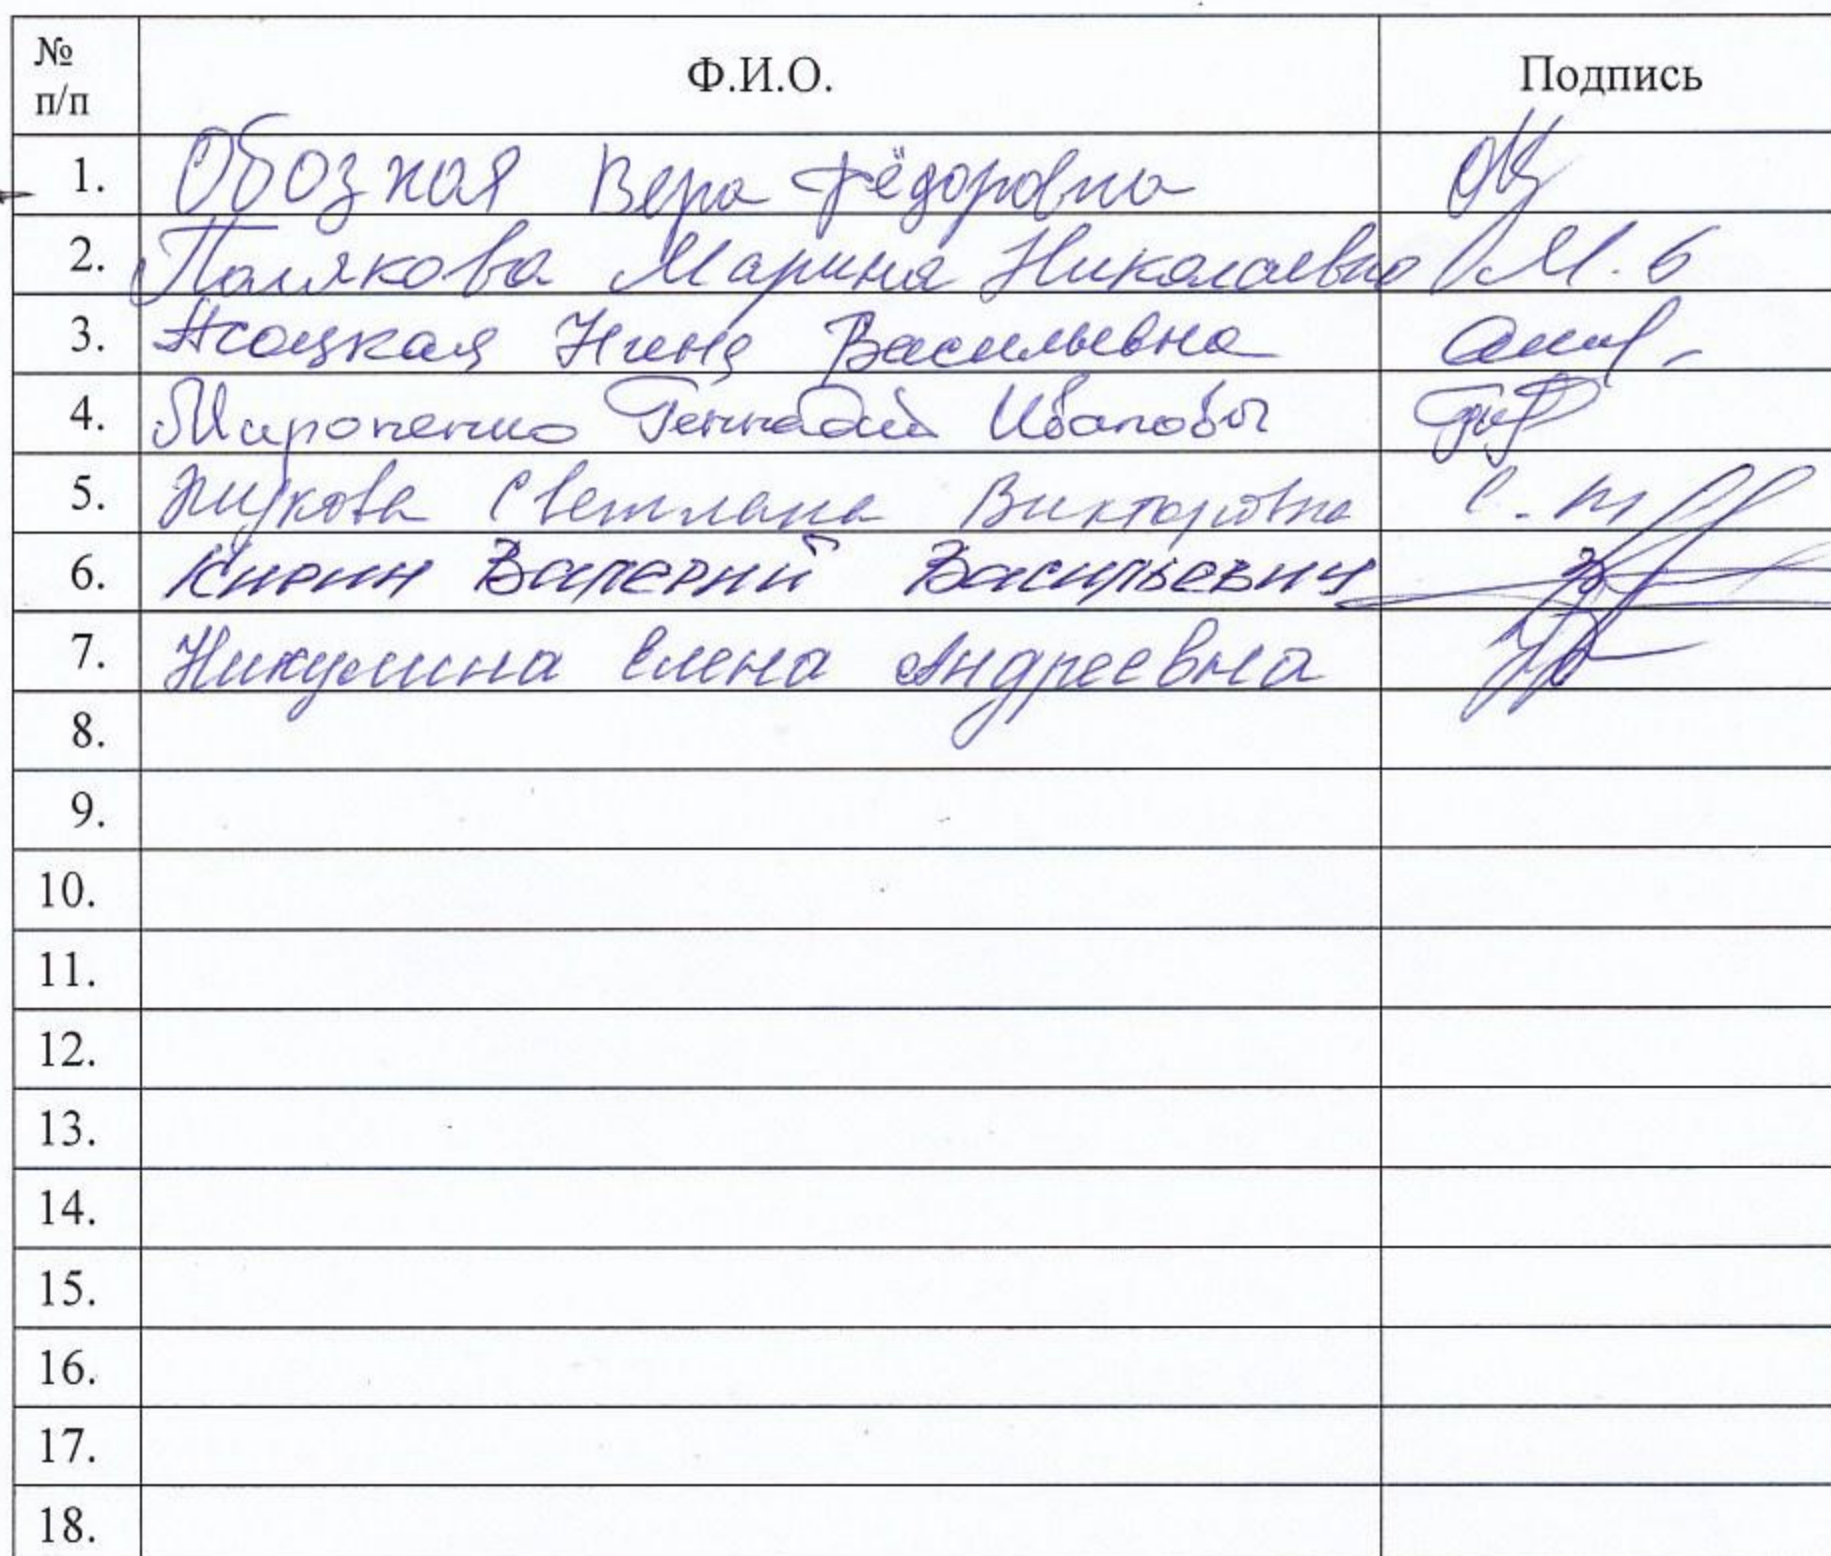 № п/п Ф.И.О. Подпись
1. Обозная Вера Фёдоровна
2. Полякова Марина Николаевна
3. Нина Васильевна
4. Мироненко Геннадий Иванович
5. Жукова Светлана Викторовна
6. Кирин Валерий Васильевич
7. Никулина Елена Андреевна
8.
9.
10.
11.
12.
13.
14.
15.
16.
17.
18.